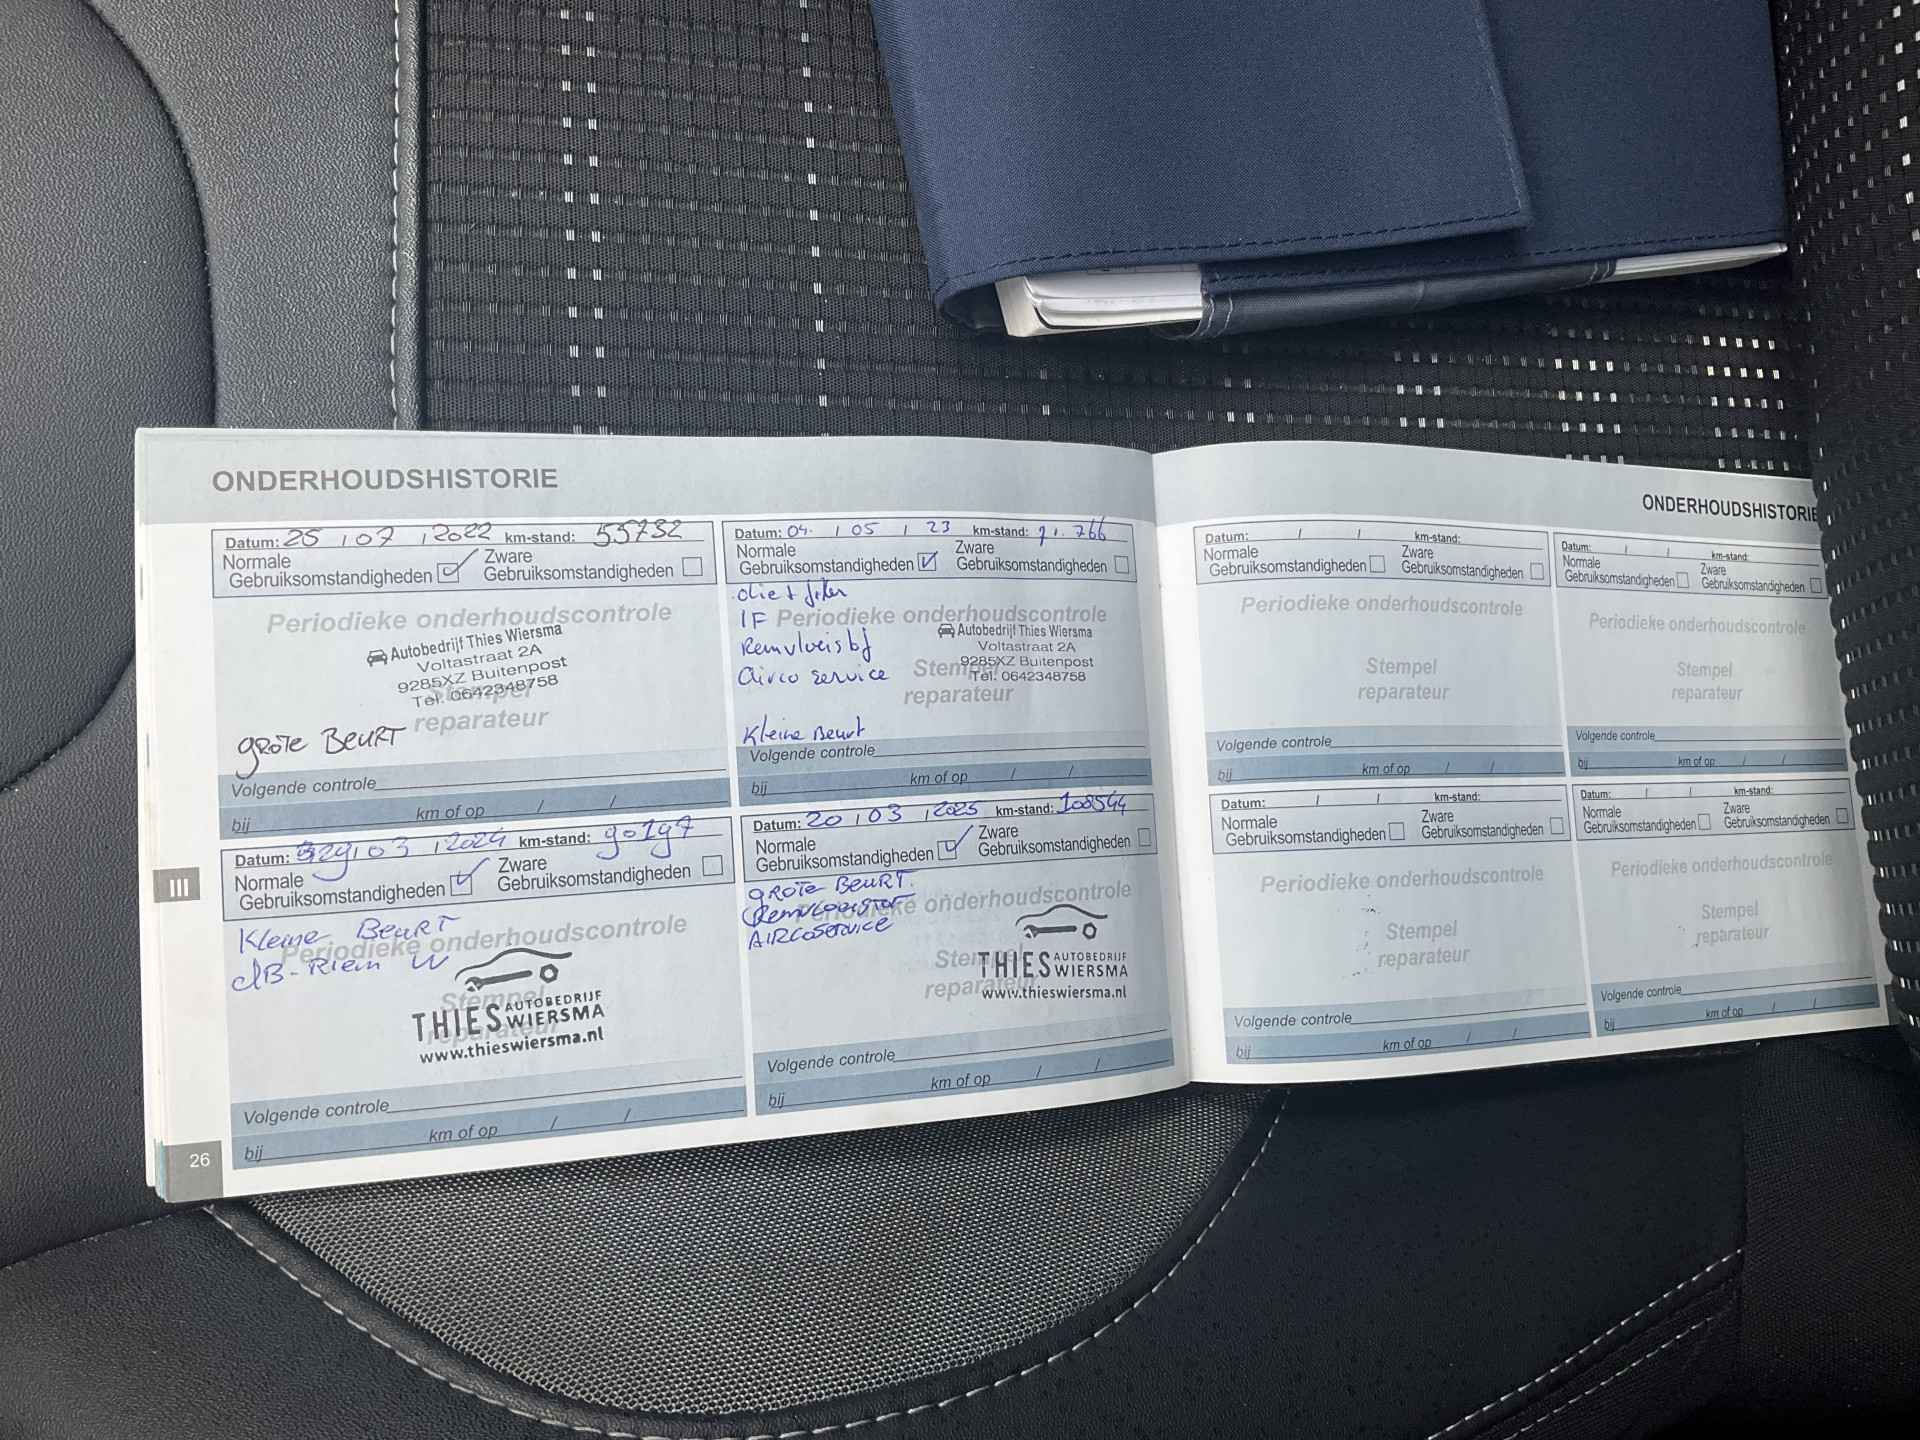 ONDERHOUDSHISTORIE
Datum: 25 / 07 / 2022 km-stand: 55732
Normale Gebruiksomstandigheden Zware Gebruiksomstandigheden
Periodieke onderhoudscontrole
Autobedrijf Thies Wiersma
Voltastraat 2A
9285XZ Buitenpost
Tel. 0642348758
Stempel
reparateur
grote Beurt
Volgende controle
bij km of op / /
Datum: 04 / 05 / 23 km-stand: 71.766
Normale Gebruiksomstandigheden Zware Gebruiksomstandigheden
olie + filter
IF Periodieke onderhoudscontrole
Remvloeistof
Airco service
Autobedrijf Thies Wiersma
Voltastraat 2A
9285XZ Buitenpost
Tel. 0642348758
Stempel
reparateur
Kleine Beurt
Volgende controle
bij km of op / /
Datum: 29 / 03 / 2024 km-stand: 90197
Normale Gebruiksomstandigheden Zware Gebruiksomstandigheden
Kleine Beurt
Periodieke onderhoudscontrole
Riem
Stempel
reparateur
THIES AUTOBEDRIJF WIERSMA
www.thieswiersma.nl
Volgende controle
bij km of op / /
Datum: 20 / 03 / 2025 km-stand: 108544
Normale Gebruiksomstandigheden Zware Gebruiksomstandigheden
grote Beurt.
Remvloeistof
Periodieke onderhoudscontrole
Aircoservice
Stempel
reparateur
THIES AUTOBEDRIJF WIERSMA
www.thieswiersma.nl
Volgende controle
bij km of op / /
III
26
ONDERHOUDSHISTORIE
Datum: / / km-stand:
Normale Gebruiksomstandigheden Zware Gebruiksomstandigheden
Periodieke onderhoudscontrole
Stempel
reparateur
Volgende controle
bij km of op / /
Datum: / / km-stand:
Normale Gebruiksomstandigheden Zware Gebruiksomstandigheden
Periodieke onderhoudscontrole
Stempel
reparateur
Volgende controle
bij km of op / /
Datum: / / km-stand:
Normale Gebruiksomstandigheden Zware Gebruiksomstandigheden
Periodieke onderhoudscontrole
Stempel
reparateur
Volgende controle
bij km of op / /
Datum: / / km-stand:
Normale Gebruiksomstandigheden Zware Gebruiksomstandigheden
Periodieke onderhoudscontrole
Stempel
reparateur
Volgende controle
bij km of op / /